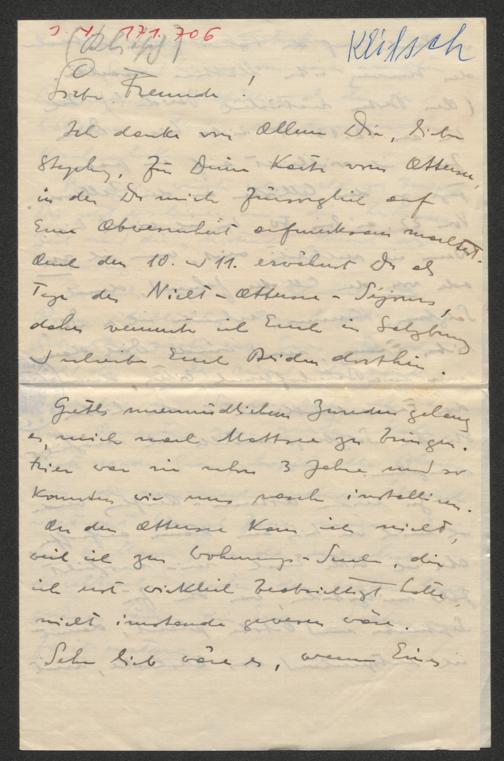 I. N. 171.706
Klitsch
Liebe Freunde!
Ich danke vor Allem Dir, lieber
für Deine Karte vom Attersee,
in der Du mich fürsorglich auf
Eure Abwesenheit aufmerksam machtest.
Auch den 10. u 11. erwähnst Du als
Tage des Nicht-Attersee-
daher vermute ich Euch in Salzburg
u schreibe Euch Beiden dorthin.
unermüdlichem Zureden gelang
es, mich nach Mattsee zu bringen.
Hier war sie schon 3 Jahre und so
konnten wir uns rasch installieren.
An den Attersee kam ich nicht,
weil ich zur Wohnungs-Suche, die
ich erst wirklich beabsichtigt hatte,
nicht imstande gewesen wäre.
Sehr lieb wäre es, wenn Eines